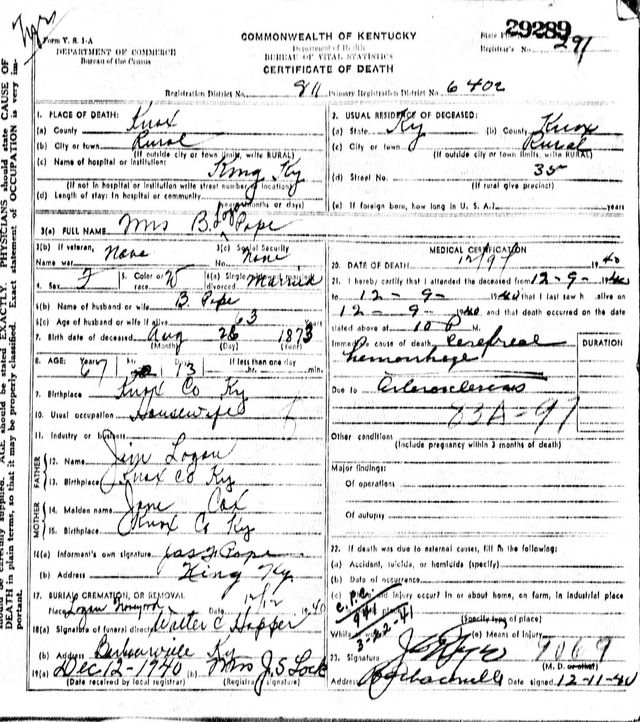 Form V. S. 1-A
DEPARTMENT OF COMMERCE
Bureau of the Census
COMMONWEALTH OF KENTUCKY
Department of Health
BUREAU OF VITAL STATISTICS
CERTIFICATE OF DEATH
29289
State File No.
Registrar's No. 291
Registration District No. 811 Primary Registration District No. 6402
1. PLACE OF DEATH:
(a) County Knox
(b) City or town Rural
(If outside city or town limits, write RURAL)
(c) Name of hospital or institution: King Ky
(If not in hospital or institution write street number or location)
(d) Length of stay: In hospital or community (months or days)
2. USUAL RESIDENCE OF DECEASED:
(a) State Ky (b) County Knox
(c) City or town Rural
(If outside city or town limits, write RURAL)
(d) Street No. 35
(If rural give precinct)
(e) If foreign born, how long in U. S. A.? years
3(a) FULL NAME Mrs B. Logan Pope
3(b) If veteran, Name war None
3(c) Social Security No. None
4. Sex F 5. Color or race W 6(a) Single Married
6(b) Name of husband or wife B. Pope
6(c) Age of husband or wife if alive 63 Years
7. Birth date of deceased Aug 26 1873
(Month) (Day) (Year)
8. AGE: Years 67 13 If less than one day
hr. min.
9. Birthplace Knox Co Ky
10. Usual occupation Housewife
11. Industry or business
FATHER
12. Name Jim Logan
13. Birthplace Knox Co Ky
MOTHER
14. Maiden name Jane Cox
15. Birthplace Knox Co Ky
16(a) Informant's own signature Jas Pope
(b) Address King Ky
17. BURIAL, CREMATION, OR REMOVAL
Place Logan Date 12/12 1940
18(a) Signature of funeral director Walter C Hopper
(b) Address Barbourville Ky
19(a) Dec 12-1940 (b) Mrs J. S. Lock
(Date received by local registrar) (Registrar's signature)
MEDICAL CERTIFICATION
20. DATE OF DEATH 12/9/ 1940
21. I hereby certify that I attended the deceased from 12-9- 1940
to 12-9-1940 that I last saw h alive on
12-9-1940, and that death occurred on the date
stated above at 10 P M.
Immediate cause of death Cerebreal
hemorrhage
DURATION
Due to
83A-97
Other conditions
(Include pregnancy within 3 months of death)
Major findings:
Of operations
Of autopsy
22. If death was due to external causes, fill in the following:
(a) Accident, suicide, or homicide (specify)
(b) Date of occurrence
(c) Did injury occur in or about home, on farm, in industrial place
(Specify type of place)
3-22-41
While (e) Means of Injury
23. Signature
(M. D. or other)
Address Date signed 12-11-40